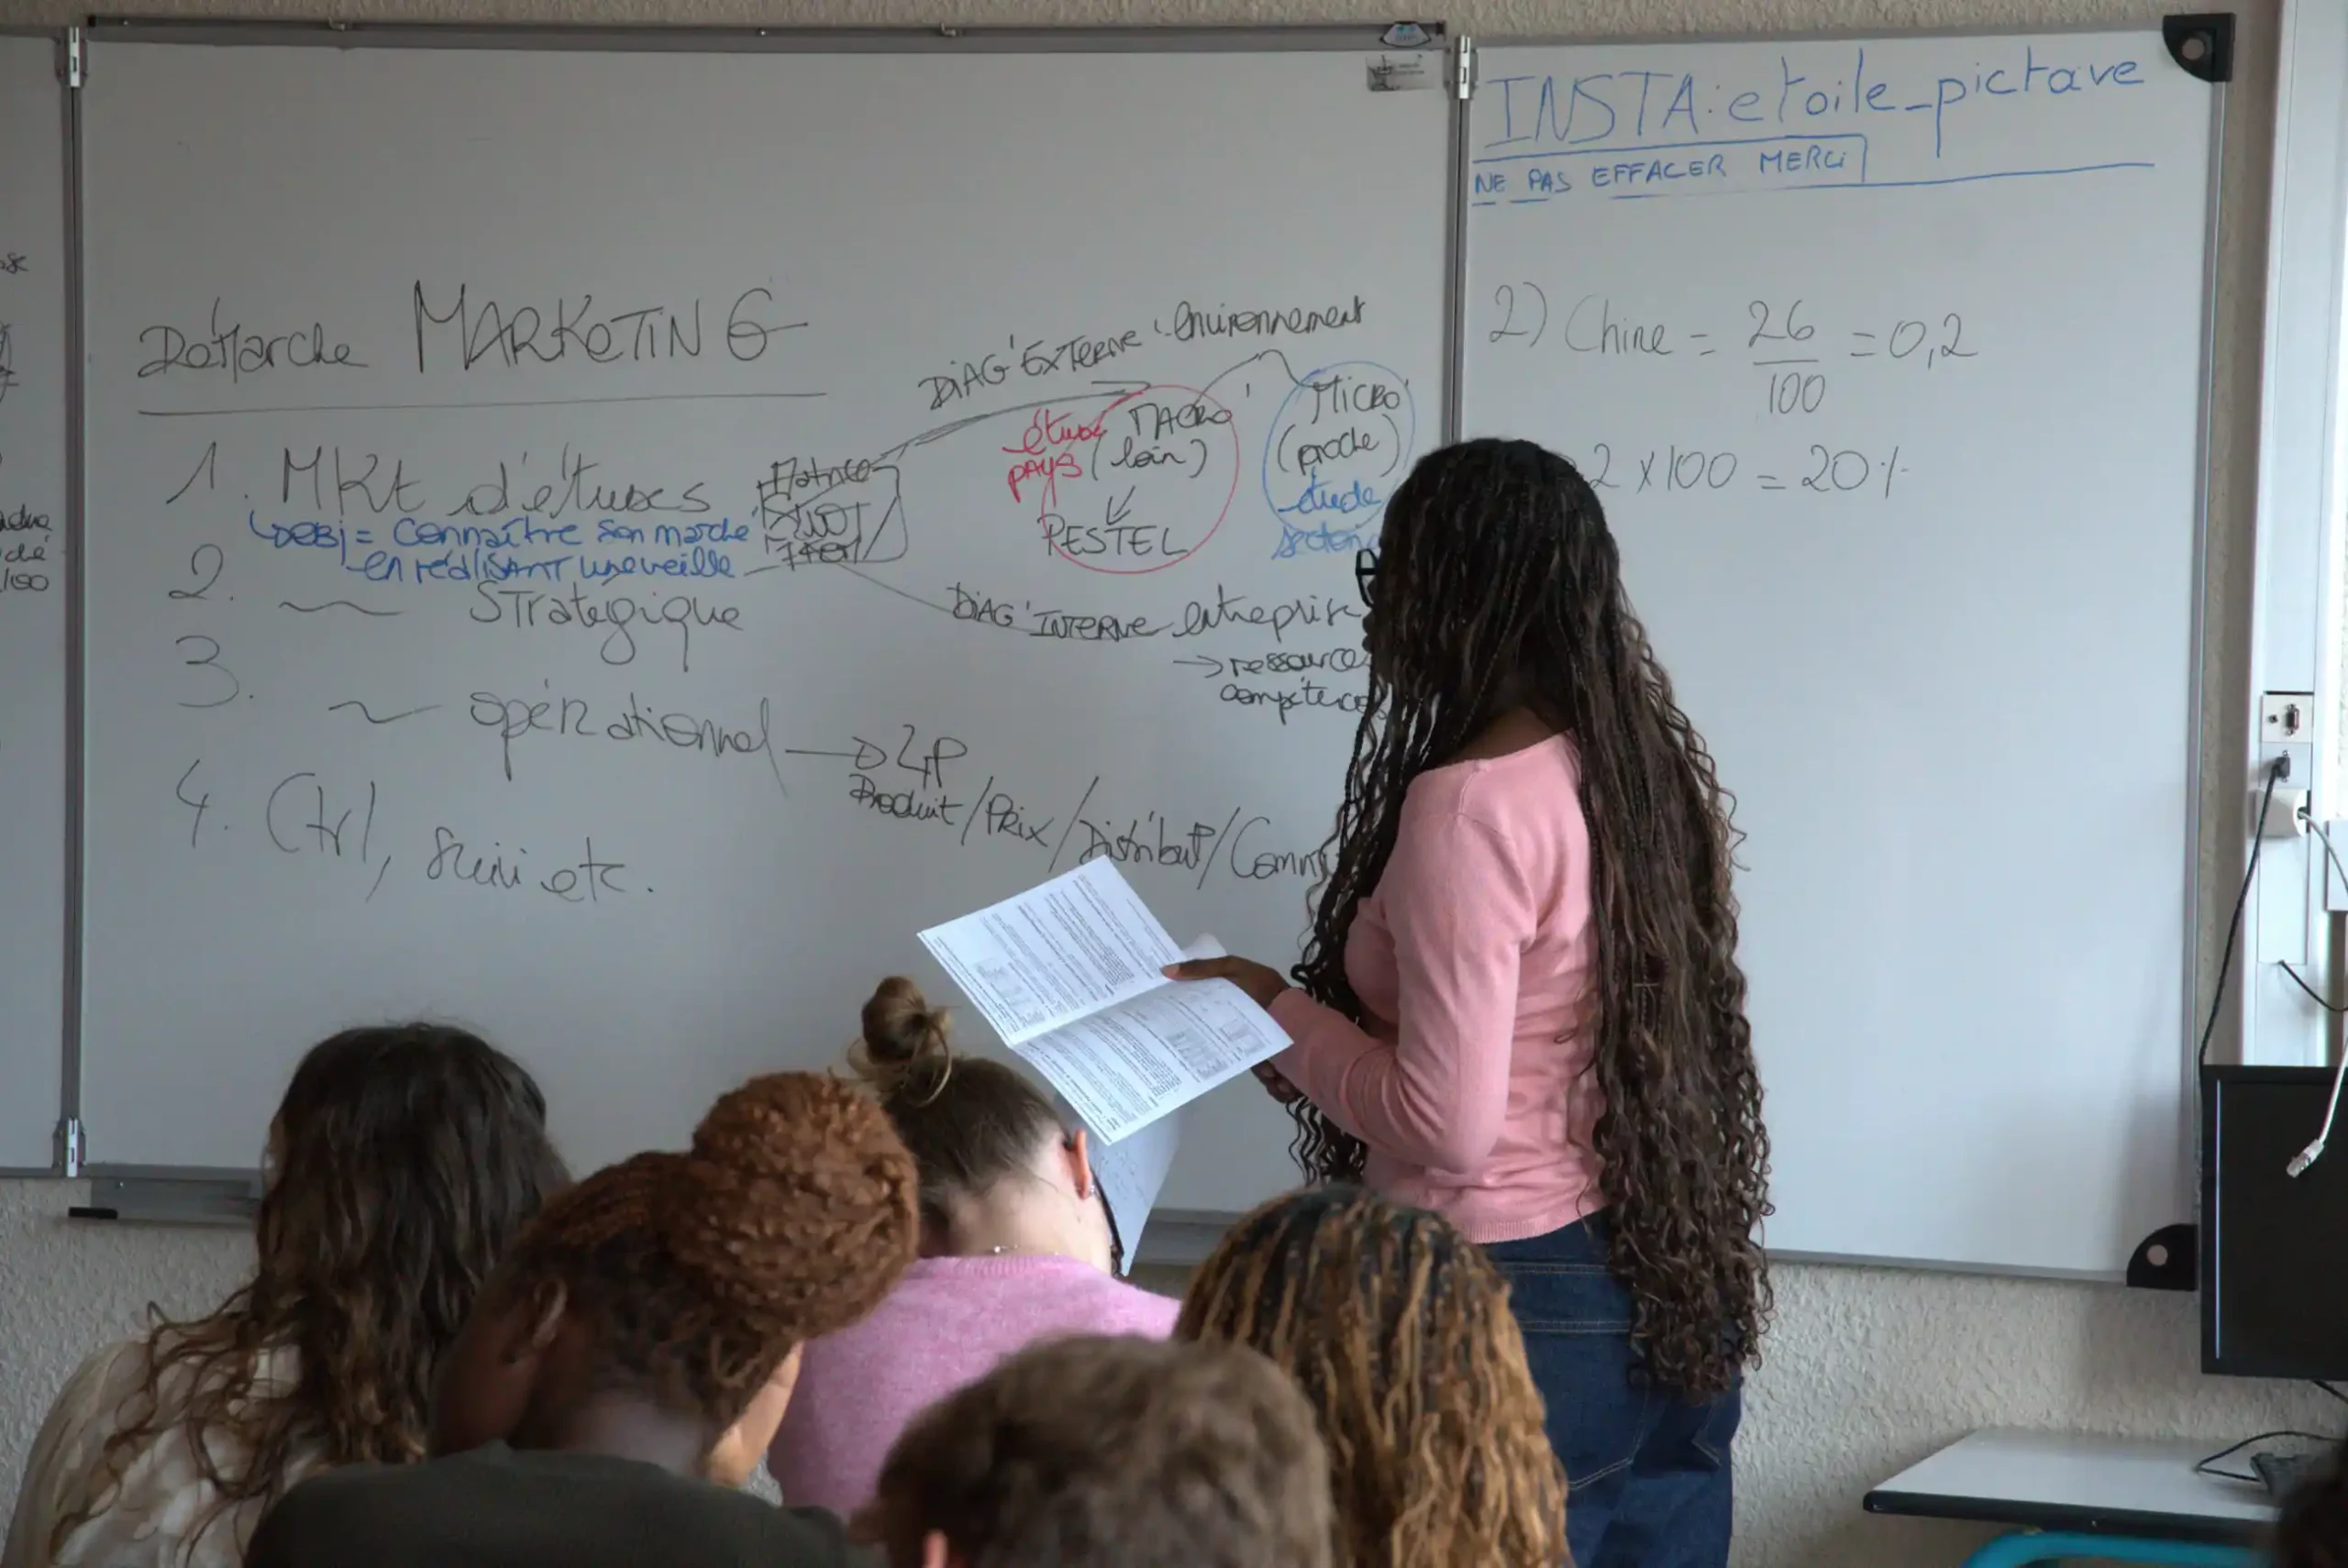 INSTA: etoile_pictave
NE PAS EFFACER MERCi
Démarche MARKETING
1. MKt d'études
OBj = connaître son marché
en réalisant une veille
2. ~ STratégique
3. ~ opérationnel → 4P
Produit / Prix / Distribut° / Comm
4. Ctrl, suivi etc.
Matrice
SWOT
DiAG' EXTERNE : environnement
MACRO
(loin)
étude
pays
PESTEL
MiCRO
(proche)
étude
DiAG' INTERNE entreprise
→ ressources
compétences
2) Chine = 26/100 = 0,2
2 x 100 = 20 %